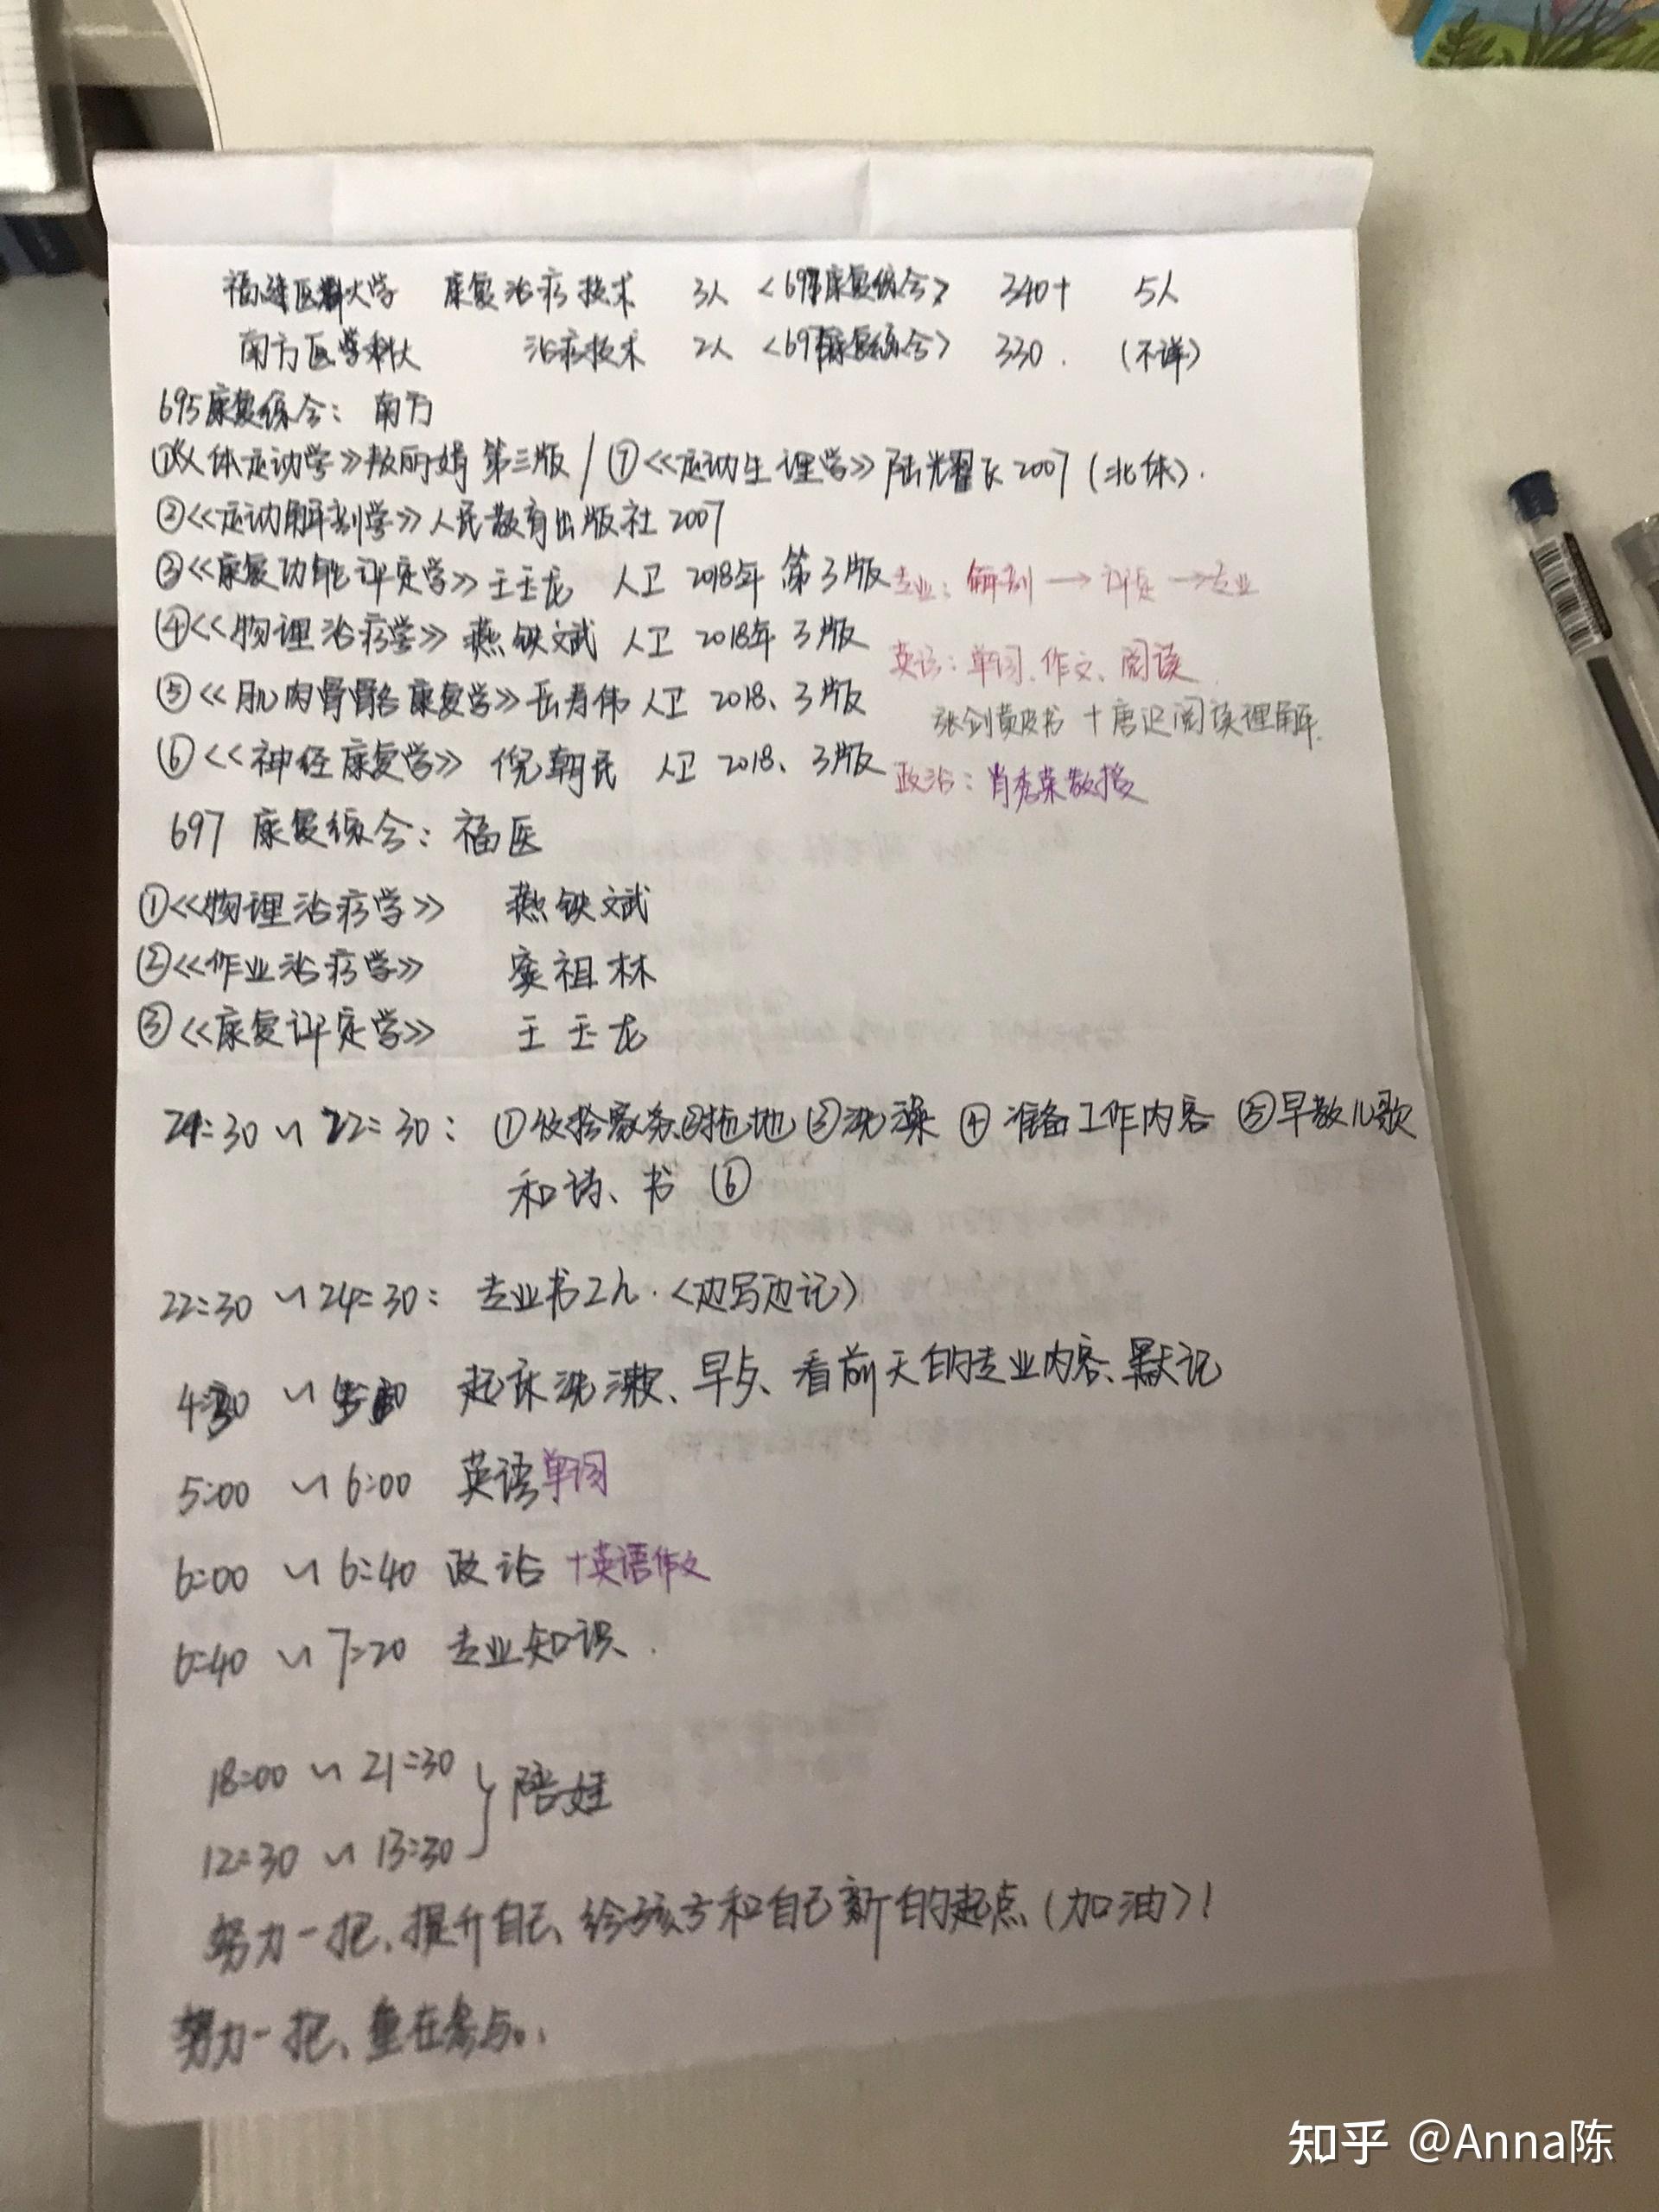 福建医科大学 康复治疗技术 3人 <697康复综合> 340+ 5人
南方医学科大 治疗技术 2人 <695康复综合> 330. (不详)
695康复综合: 南方
①《人体运动学》敖丽娟 第三版 / ⑦《运动生理学》陆光耀 2007 (北体).
②《运动解剖学》人民教育出版社 2007
③《康复功能评定学》王玉龙 人卫 2018年 第3版 专业: 解剖→评定→专业
④《物理治疗学》燕铁斌 人卫 2018年 3版
英语: 单词、作文、阅读.
⑤《肌肉骨骼康复学》岳寿伟 人卫 2018、3版
张剑黄皮书+唐迟阅读理解.
⑥《神经康复学》倪朝民 人卫 2018、3版 政治: 肖秀荣教授
697 康复综合: 福医
①《物理治疗学》 燕铁斌
②《作业治疗学》 窦祖林
③《康复评定学》 王玉龙
21:30 ~ 22:30: ①收拾家务 ②拖地 ③洗澡 ④准备工作内容 ⑤早教儿歌
和诗、书 ⑥
22:30 ~ 24:30: 专业书2h. <边写边记>
4:30 ~ 起床洗漱、早点、看前天的专业内容、默记
5:00 ~ 6:00 英语单词
6:00 ~ 6:40 政治+英语作文
6:40 ~ 7:20 专业知识.
18:00 ~ 21:30 } 陪娃
12:30 ~ 13:30
努力一把、提升自己、给孩子和自己新的起点(加油)!
努力一把、重在参与。
知乎 @Anna陈